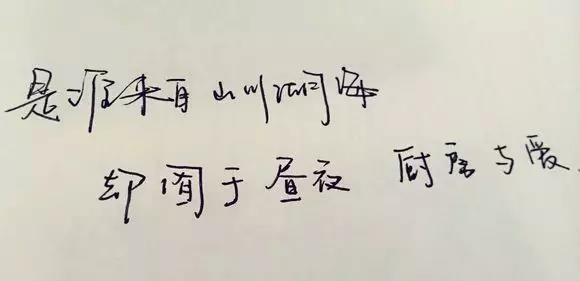 是谁来自山川湖海
却囿于昼夜 厨房与爱.